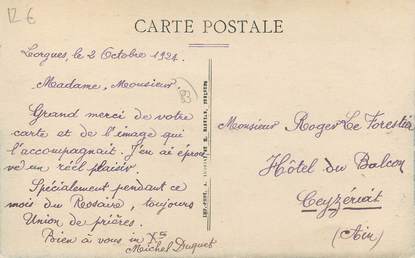 12 €
CARTE POSTALE
Lorgues, le 2 Octobre 1924.
Madame, Monsieur,
83
Grand merci de votre
carte et de l'image qui
l'accompagnait. J'en ai éprou-
vé un réel plaisir.
Spécialement pendant ce
mois du Rosaire, toujours
Union de prières.
Bien à vous in X
Michel Duquet
Monsieur Roger Le Forestier
Hôtel du Balcon
Ceyzériat
(Ain)